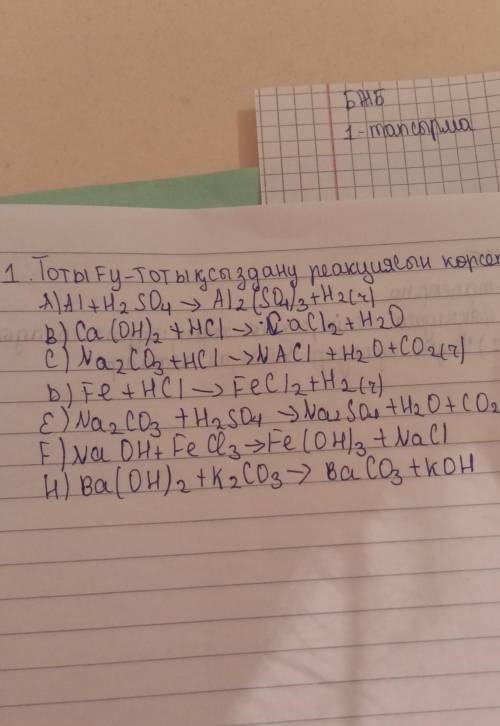 БЖБ
1-тапсырма
1. Тотығу-тотықсыздану реакциясын көрсет
A) Al + H2SO4 → Al2(SO4)3 + H2(г)
B) Ca(OH)2 + HCl → CaCl2 + H2O
C) Na2CO3 + HCl → NACl + H2O + CO2(г)
D) Fe + HCl → FeCl2 + H2(г)
E) Na2CO3 + H2SO4 → Na2SO4 + H2O + CO2
F) NaOH + FeCl3 → Fe(OH)3 + NaCl
H) Ba(OH)2 + K2CO3 → BaCO3 + KOH